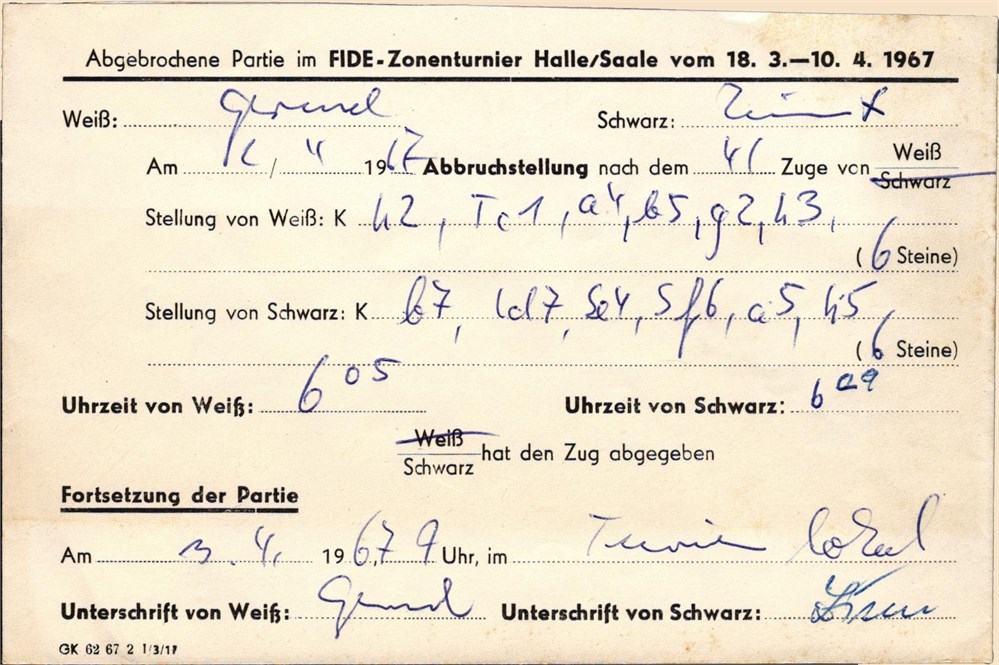 Abgebrochene Partie im FIDE-Zonenturnier Halle/Saale vom 18. 3.—10. 4. 1967
Weiß: Schwarz:
Am / 4 1967 Abbruchstellung nach dem 41 Zuge von Weiß Schwarz
Stellung von Weiß: K h2, Tc1, a4, b5, g2, h3,
(6 Steine)
Stellung von Schwarz: K b7, Ld7, Se4, Sf6, a5, h5,
(6 Steine)
Uhrzeit von Weiß: 6 05 Uhrzeit von Schwarz: 6 09
Weiß
Schwarz hat den Zug abgegeben
Fortsetzung der Partie
Am 3. 4. 1967, 9 Uhr, im Turnier lokal
Unterschrift von Weiß: Unterschrift von Schwarz:
GK 62 67 2 1/3/17